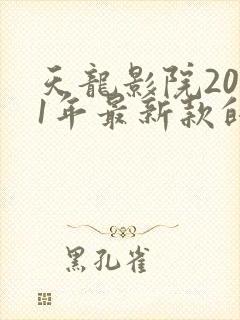 天龍影院20
1年最新款的
黑孔雀